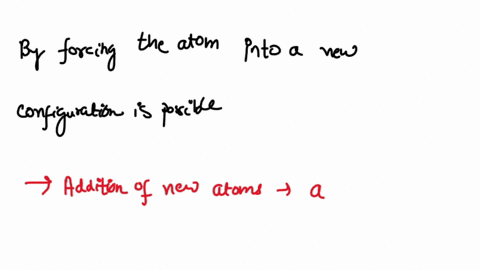 By forcing the atom into a new
configuration is posible
→ Addition of new atoms → a